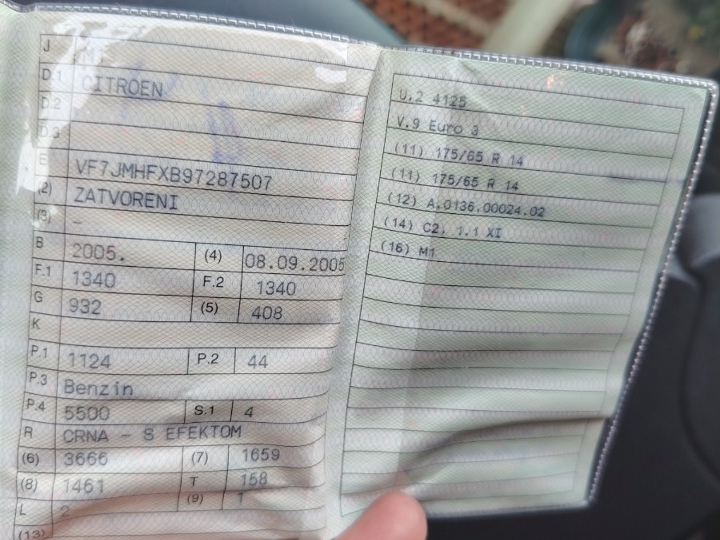 J M1
D.1 CITROEN
D.2
D.3
E VF7JMHFXB97287507
(2) ZATVORENI
(3) –
B 2005. (4) 08.09.2005
F.1 1340 F.2 1340
G 932 (5) 408
K
P.1 1124 P.2 44
P.3 Benzin
P.4 5500 S.1 4
R CRNA - S EFEKTOM
(6) 3666 (7) 1659
(8) 1461 T 158
L 2 (9) 1
(13)
U.2 4125
V.9 Euro 3
(11) 175/65 R 14
(11) 175/65 R 14
(12) A.0136.00024.02
(14) C2, 1.1 XI
(16) M1